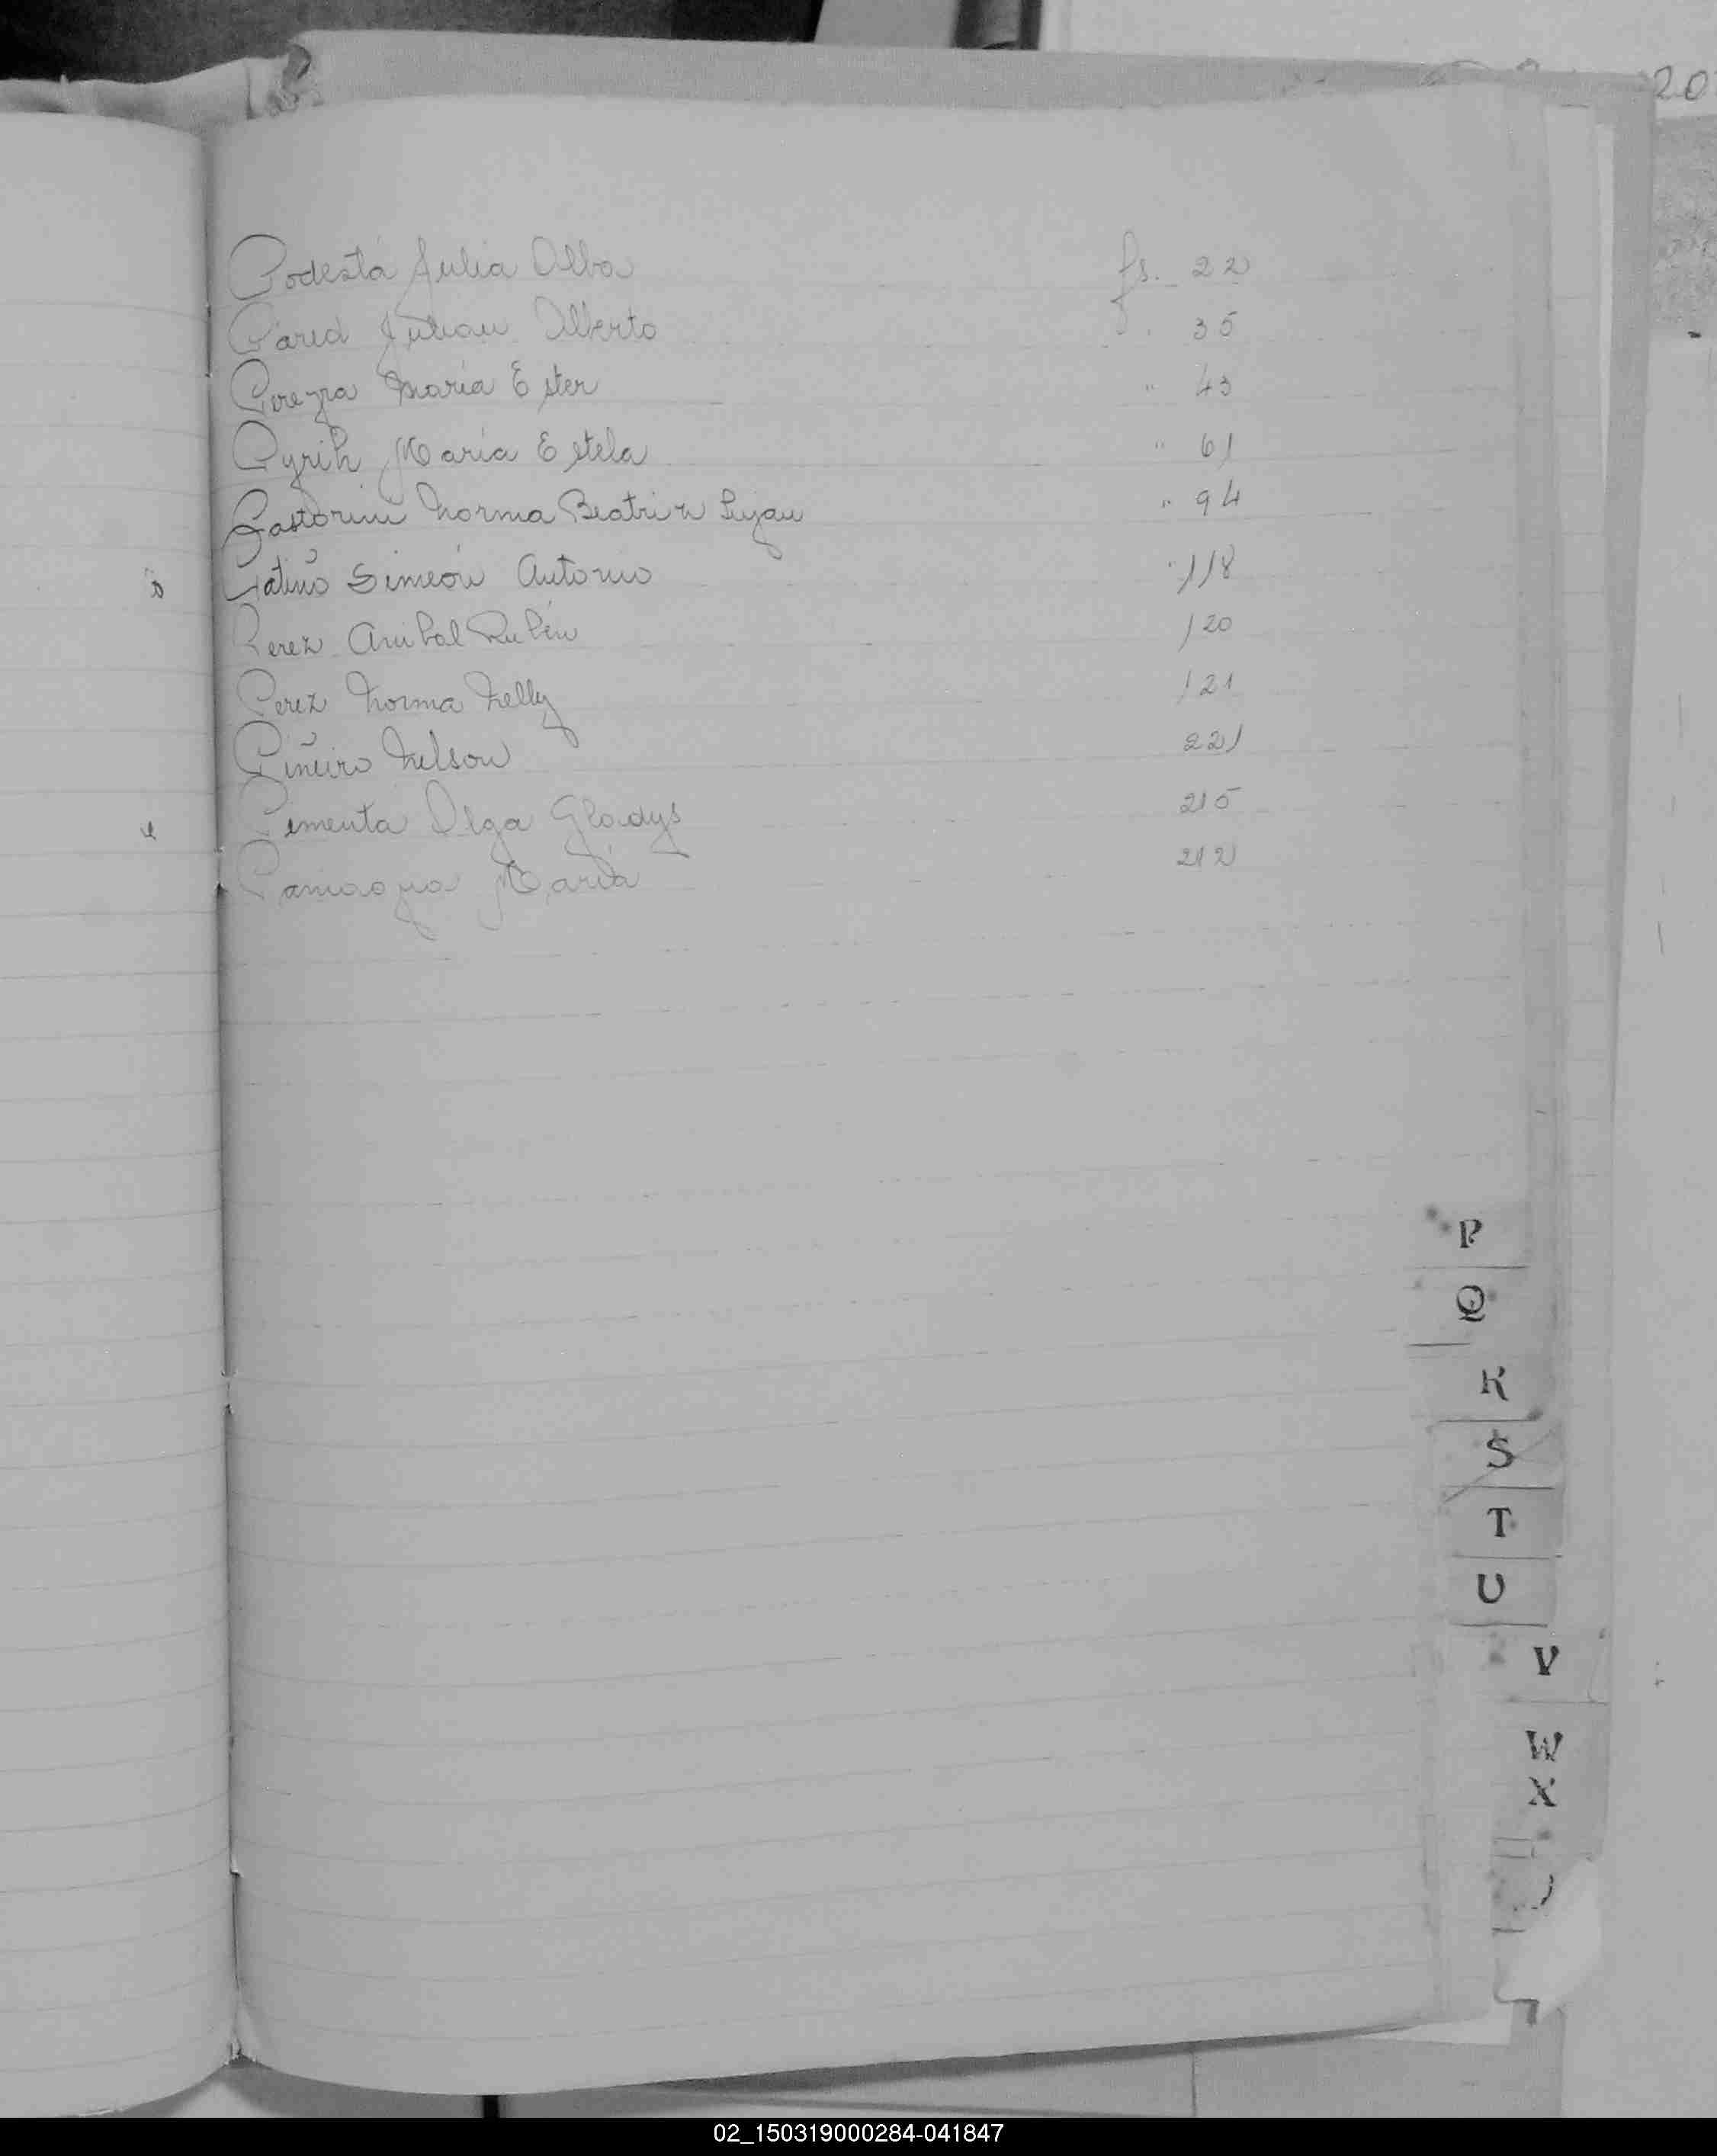 Podestá Julia Alba fs. 22
Pared Julian Alberto " 35
Pereyra Maria Ester " 43
Pyrih Maria Estela " 61
Pastorini Norma Beatriz Lujan " 94
Patiño Simeón Antonio " 118
Perez Anibal Rubén 120
Perez Norma Nelly 121
Piñeiro Nelson 221
Pimenta Olga Gladys 215
Paniagua María 212
P
Q
R
S
T
U
V
W
X
02_150319000284-041847